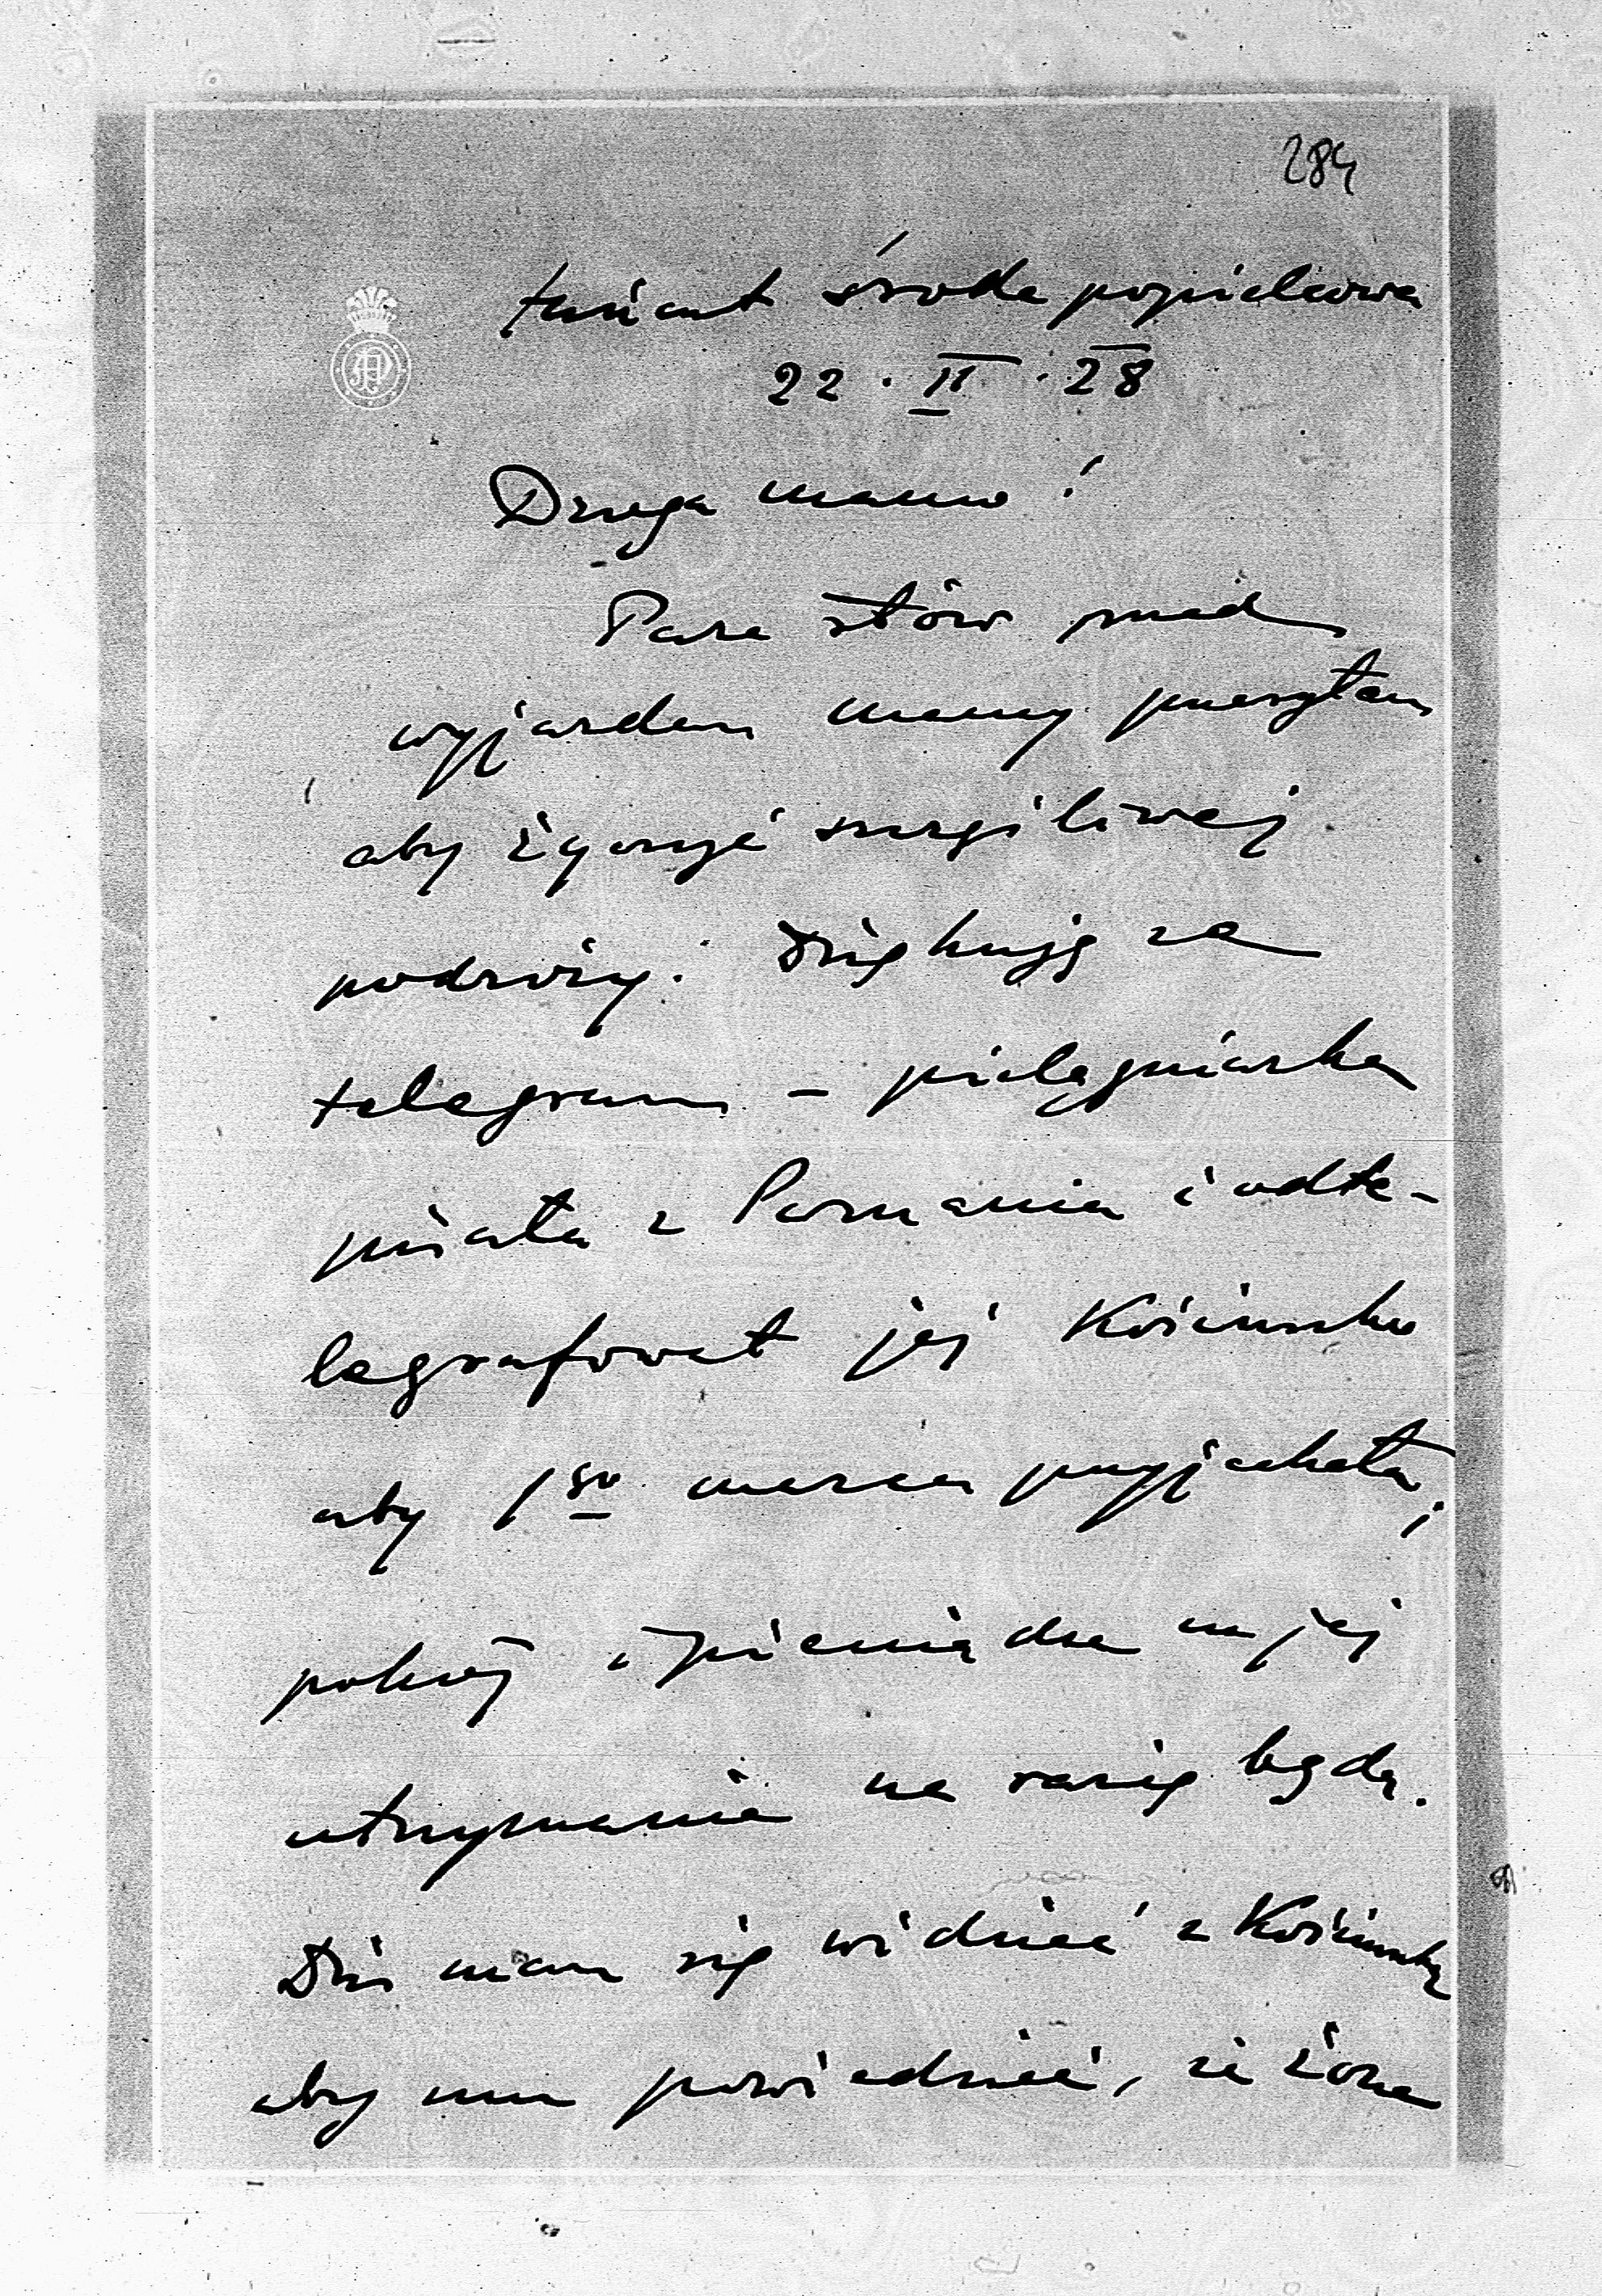 284
Łańcut środa popielcowa
22 · II · 28
Droga mamo!
Parę słów przed
wyjazdem mamy przesyłam
aby życzyć szczęśliwej
podróży. Dziękuję za
telegram – pielęgniarka
pisała z Poznania i odte-
legrafował jej Kościuszko
aby 1go marca przyjechała;
pokój i pieniądze na jej
utrzymanie na razie będą.
Dziś mam się widzieć z Kościuszką
aby mu powiedzieć, że żona